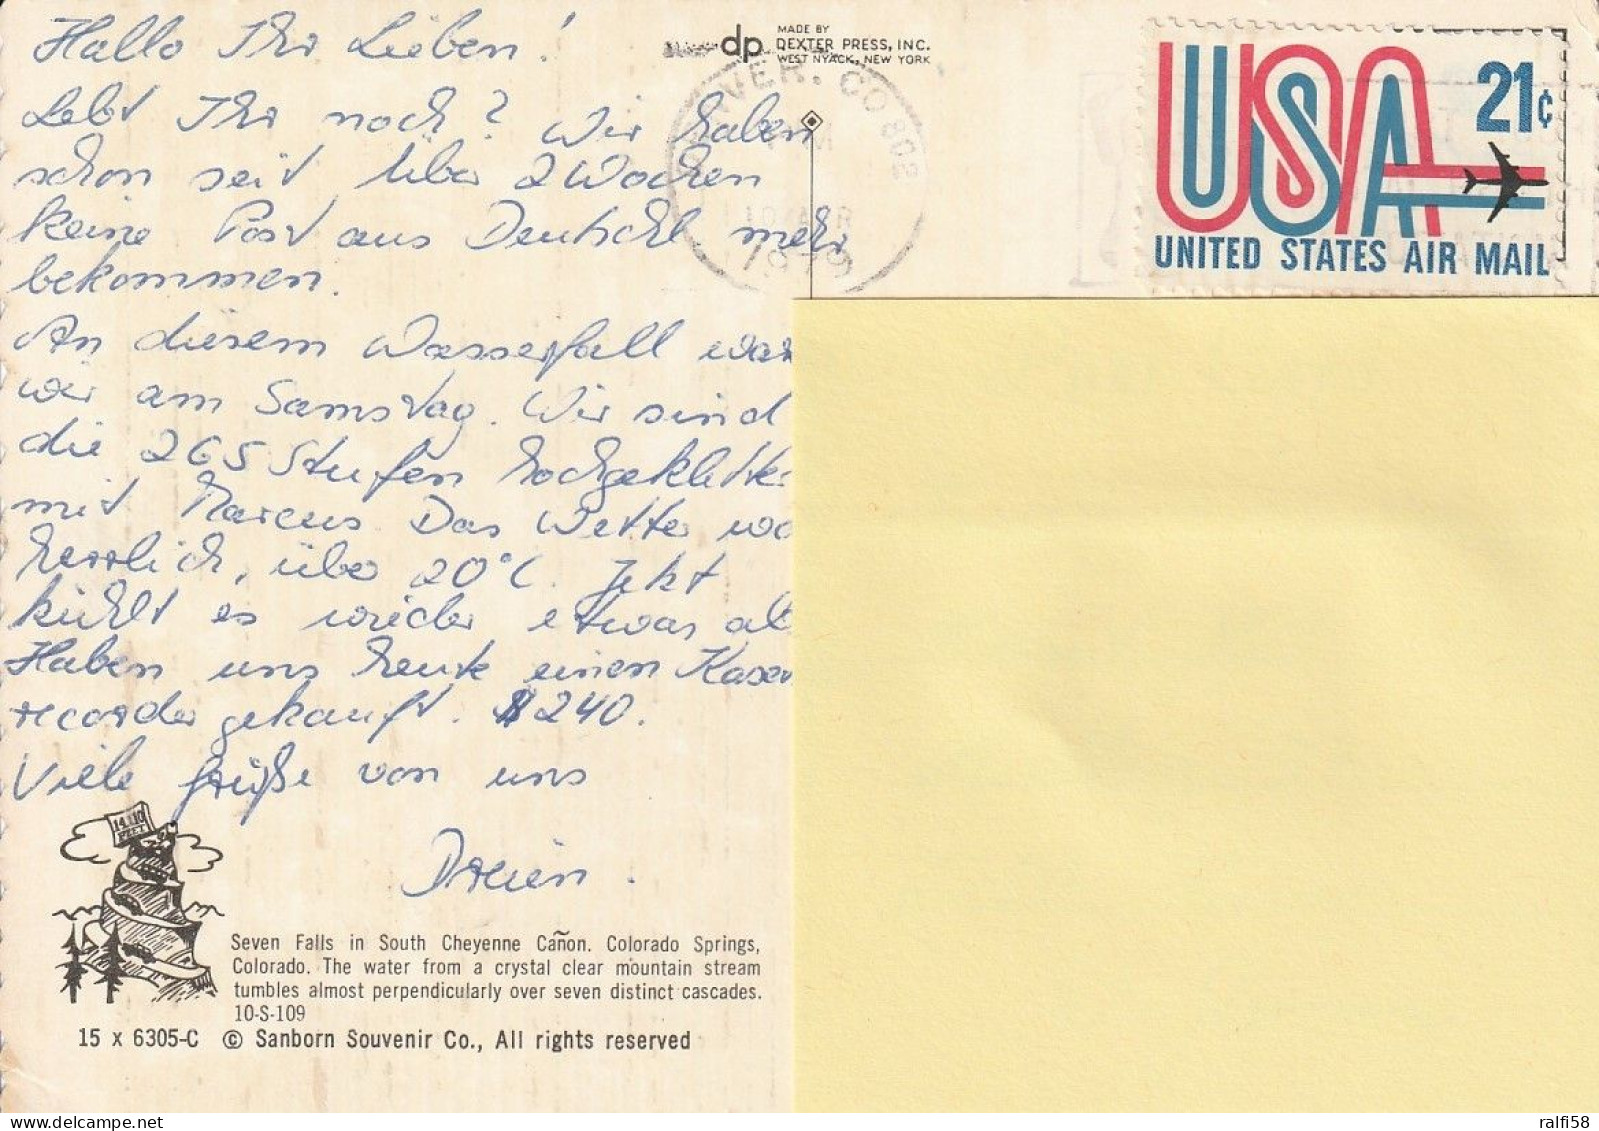 Hallo Ihr Lieben!
Lebt Ihr noch? Wir haben
schon seit über 2 Wochen
keine Post aus Deutschl. mehr
bekommen.
An diesem Wasserfall war
wir am Samstag. Wir sind
die 265 Stufen hochgeklett
mit Marcus. Das Wetter wa
herrlich, über 20°C. Jetzt
kühlt es wieder etwas ab
Haben uns heute einen Kasse
recorder gekauft. $240.
Viele Grüße von uns
Dreien.
dp MADE BY
DEXTER PRESS, INC.
WEST NYACK, NEW YORK
VER, CO 802
1979
USA 21¢
UNITED STATES AIR MAIL
14,110
FEET
Seven Falls in South Cheyenne Cañon. Colorado Springs,
Colorado. The water from a crystal clear mountain stream
tumbles almost perpendicularly over seven distinct cascades.
10-S-109
15 x 6305-C © Sanborn Souvenir Co., All rights reserved
ralfi58